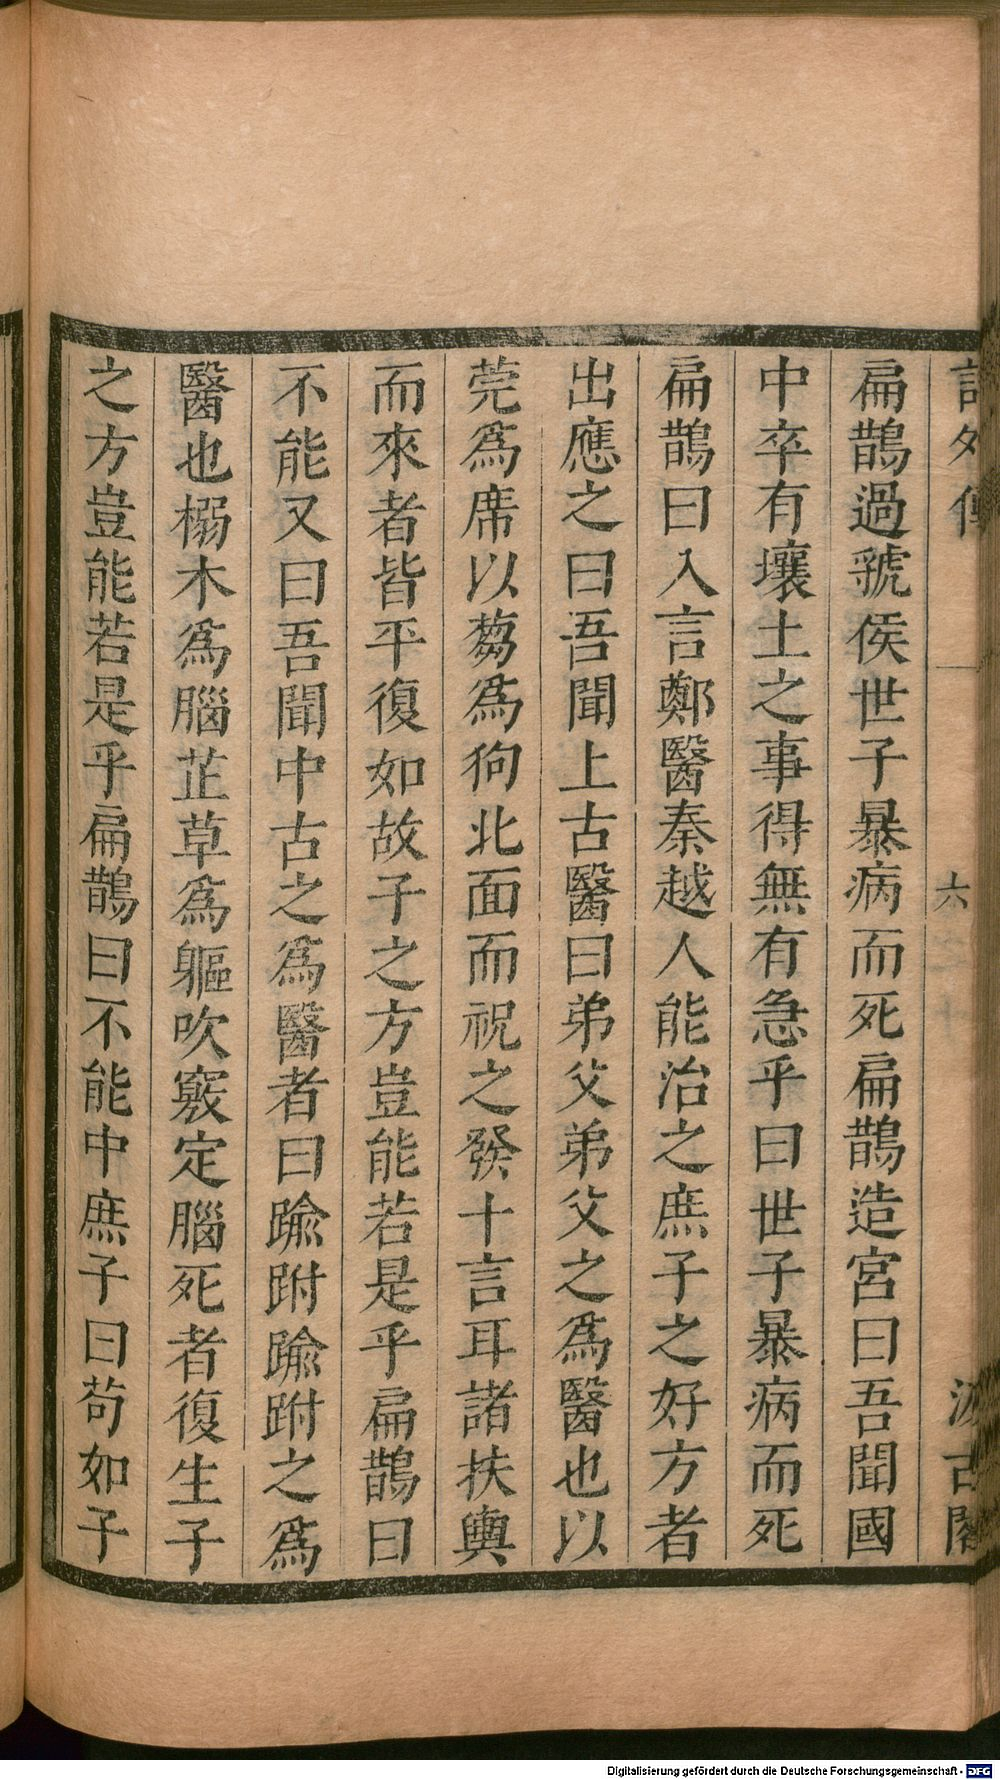 詩外傳 六 汲古閣
扁鵲過虢侯世子暴病而死扁鵲造宮曰吾聞國
中卒有壤土之事得無有急乎曰世子暴病而死
扁鵲曰入言鄭醫秦越人能治之庶子之好方者
出應之曰吾聞上古醫曰弟父弟父之爲醫也以
莞爲席以蒭爲狗北面而祝之發十言耳諸扶輿
而來者皆平復如故子之方豈能若是乎扁鵲曰
不能又曰吾聞中古之爲醫者曰踰跗踰跗之爲
醫也榒木爲腦芷草爲軀吹竅定腦死者復生子
之方豈能若是乎扁鵲曰不能中庶子曰苟如子
Digitalisierung gefördert durch die Deutsche Forschungsgemeinschaft - DFG